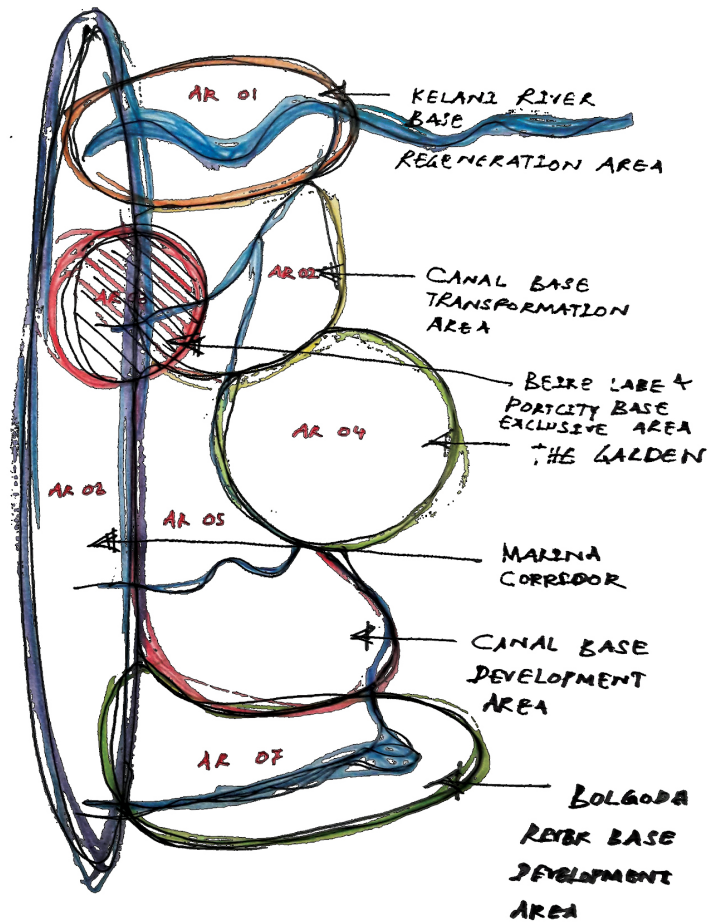 AR 01
KELANI RIVER
BASE
REGENERATION AREA
AR 02
CANAL BASE
TRANSFORMATION
AREA
BEIRE LABE &
PORTCITY BASE
EXCLUSIVE AREA
AR 04
THE GARDEN
AR 05
MARINA
CORRIDOR
CANAL BASE
DEVELOPMENT
AREA
AR 07
BOLGODA
REVER BASE
DEVELOPMENT
AREA